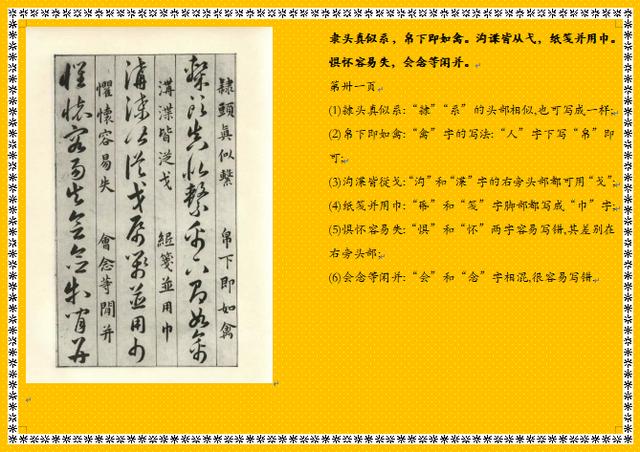 隸頭真似繫 帛下即如禽
隸頭真似繫帛下即如禽
溝渫皆從戈 箋並用巾
溝渫皆從戈箋並用巾
懼懷容易失 會念等閒并
懼懷容易失會念等閒并
隶头真似系，帛下即如禽。沟渫皆从戈，纸笺并用巾。
惧怀容易失，会念等闲并。
第卅一页
(1)隶头真似系:“隶”“系”的头部相似,也可写成一样;
(2)帛下即如禽:“禽”字的写法:“人”字下写“帛”即
可;
(3)沟渫皆從戈:“沟”和“渫”字的右旁头部都可用“戈”;
(4)纸笺并用巾:“”和“笺”字脚部都写成“巾”字;
(5)惧怀容易失:“惧”和“怀”两字容易写错,其差别在
右旁头部;
(6)会念等闲并:“会”和“念”字相混,很容易写错.